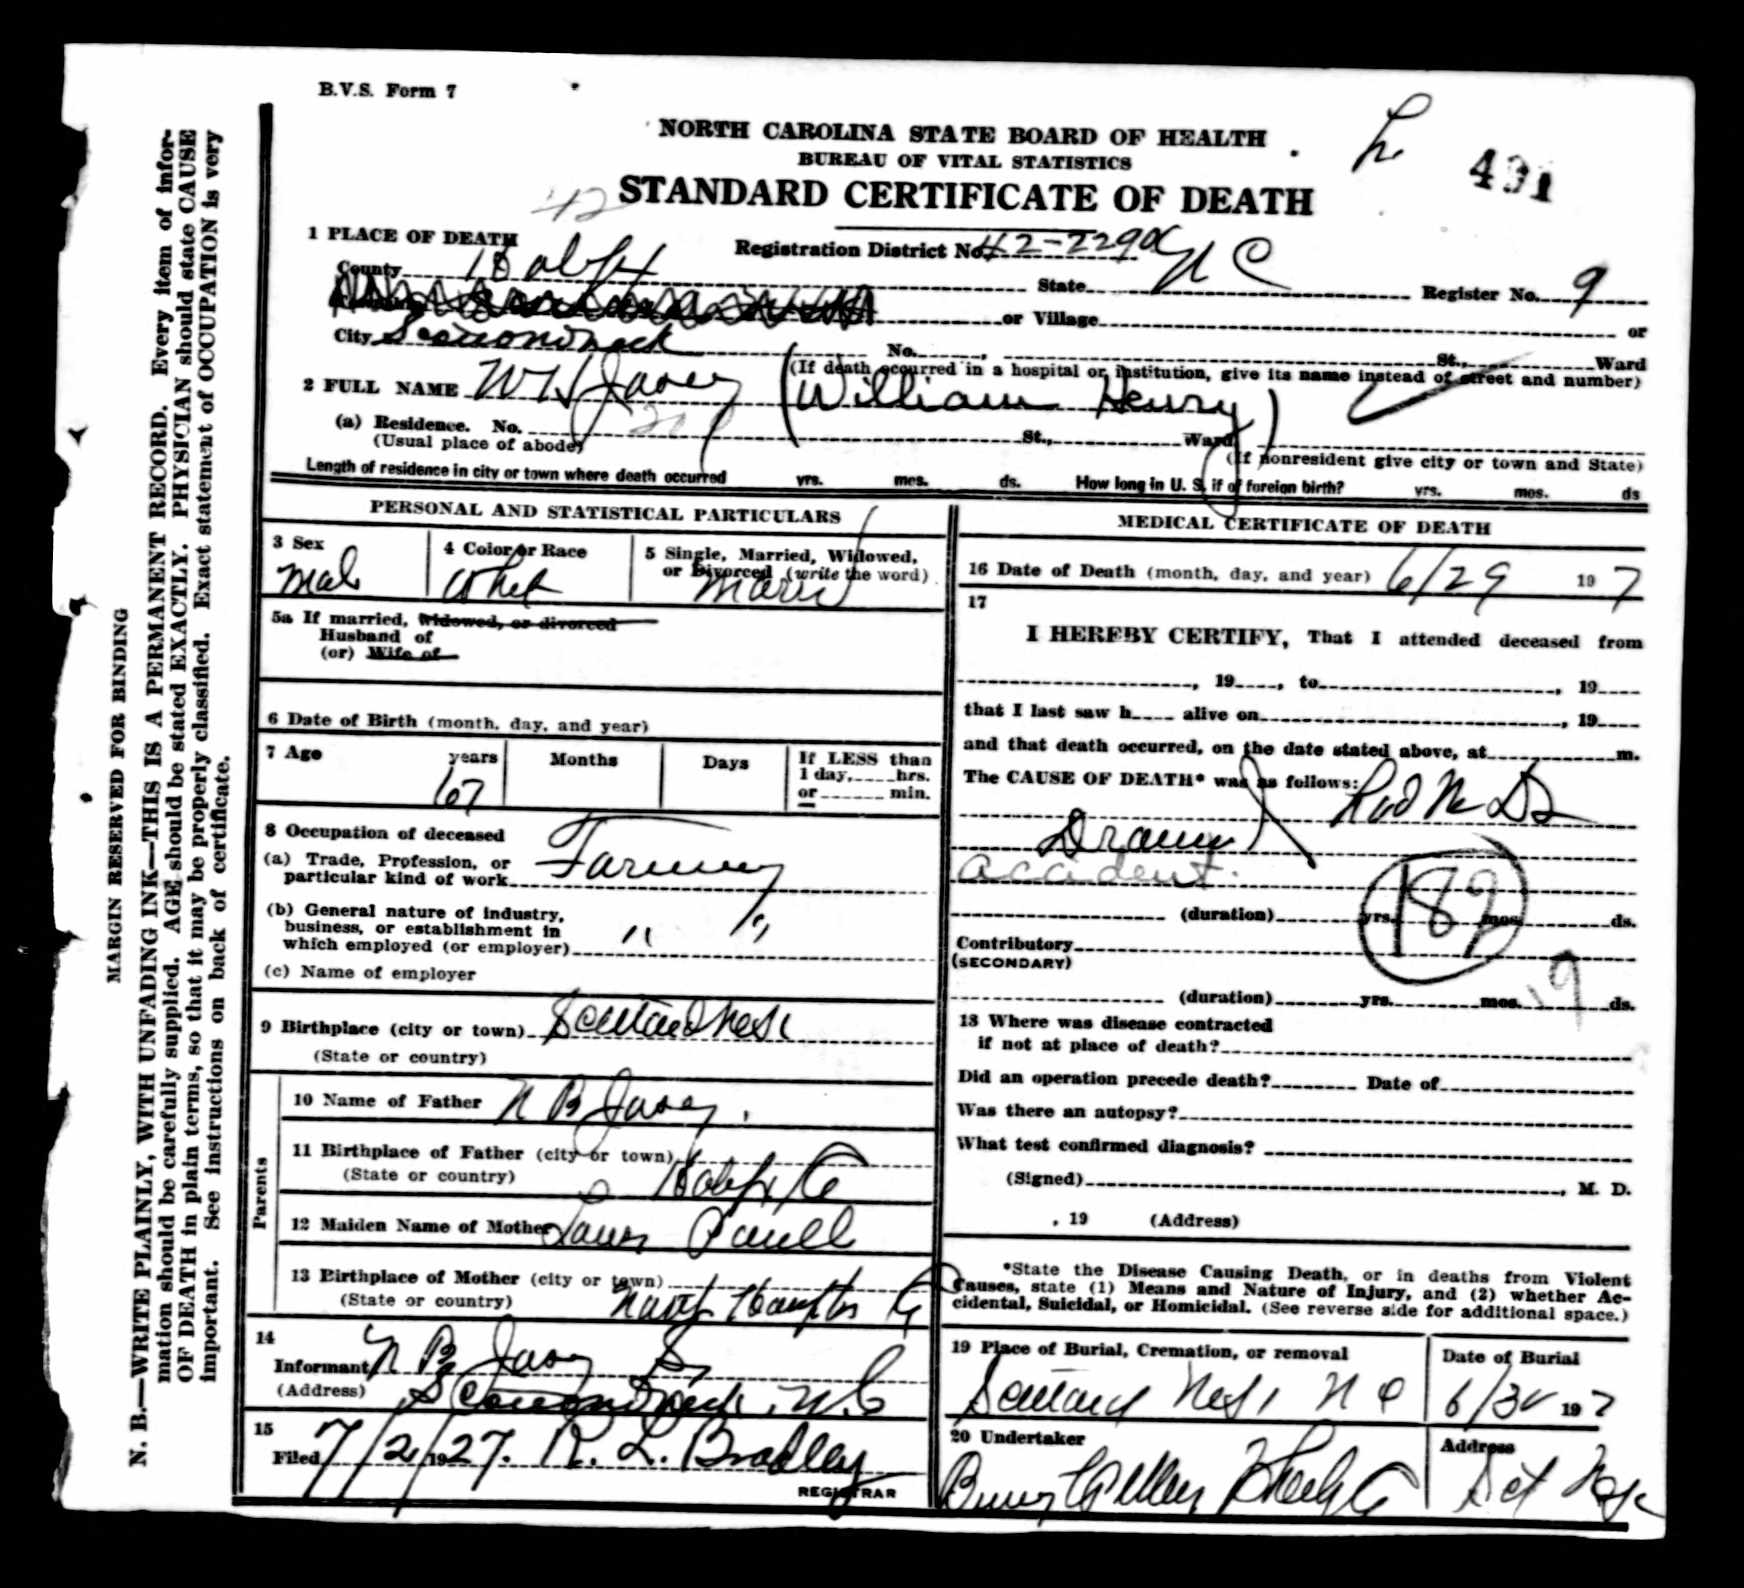 B.V.S. Form 7
NORTH CAROLINA STATE BOARD OF HEALTH
BUREAU OF VITAL STATISTICS
STANDARD CERTIFICATE OF DEATH
491
42
1 PLACE OF DEATH
Registration District No. 42-2290
County Halifx State N C Register No. 9
or Village or
City Scotland Neck No. , St., Ward
(If death occurred in a hospital or institution, give its name instead of street and number)
2 FULL NAME W H Josey (William Henry)
(a) Residence. No. St., Ward,
(Usual place of abode) (If nonresident give city or town and State)
Length of residence in city or town where death occurred yrs. mos. ds. How long in U. S. if of foreign birth? yrs. mos. ds
PERSONAL AND STATISTICAL PARTICULARS
3 Sex
Mal
4 Color or Race
5 Single, Married, Widowed,
or Divorced (write the word)
5a If married, widowed, or divorced
Husband of
(or) Wife of
6 Date of Birth (month, day, and year)
7 Age years Months Days If LESS than
1 day, hrs.
or min.
67
8 Occupation of deceased
(a) Trade, Profession, or
particular kind of work Farmer
(b) General nature of industry,
business, or establishment in
which employed (or employer) " "
(c) Name of employer
9 Birthplace (city or town) Scotland Neck
(State or country)
Parents
10 Name of Father N B Josey
11 Birthplace of Father (city or town)
(State or country) Halifx Co
12 Maiden Name of Mother
13 Birthplace of Mother (city or town)
(State or country) North Hampton Co
14
Informant N B Josey Sr
(Address) Scotland Neck, N.C
15
Filed 7/2/1927. R. L. Bradley
REGISTRAR
MEDICAL CERTIFICATE OF DEATH
16 Date of Death (month, day, and year) 6/29 19 7
17
I HEREBY CERTIFY, That I attended deceased from
, 19 , to , 19
that I last saw h alive on , 19
and that death occurred, on the date stated above, at m.
The CAUSE OF DEATH* was as follows:
Had No Dr
Drown
accident.
182
(duration) yrs. mos. ds.
Contributory
(SECONDARY)
(duration) yrs. mos. ds.
19
18 Where was disease contracted
if not at place of death?
Did an operation precede death? Date of
Was there an autopsy?
What test confirmed diagnosis?
(Signed) , M. D.
, 19 (Address)
*State the Disease Causing Death, or in deaths from Violent
Causes, state (1) Means and Nature of Injury, and (2) whether Ac-
cidental, Suicidal, or Homicidal. (See reverse side for additional space.)
19 Place of Burial, Cremation, or removal
Scotland Neck N C
Date of Burial
6/30 192 7
20 Undertaker
Address
MARGIN RESERVED FOR BINDING
N. B.—WRITE PLAINLY, WITH UNFADING INK—THIS IS A PERMANENT RECORD. Every item of infor-
mation should be carefully supplied. AGE should be stated EXACTLY. PHYSICIAN should state CAUSE
OF DEATH in plain terms, so that it may be properly classified. Exact statement of OCCUPATION is very
important. See instructions on back of certificate.